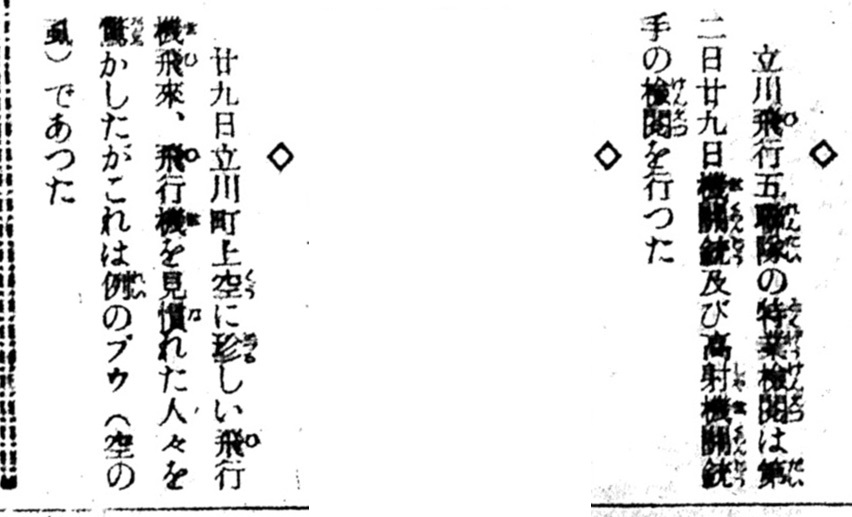 ◇
立川飛行五聯隊の特業檢閲は第
二日廿九日機關銃及び高射機關銃
手の檢閲を行つた
◇
廿九日立川町上空に珍しい飛行
機飛來、飛行機を見慣れた人々を
驚かしたがこれは例のプウ（空の
虱）であつた